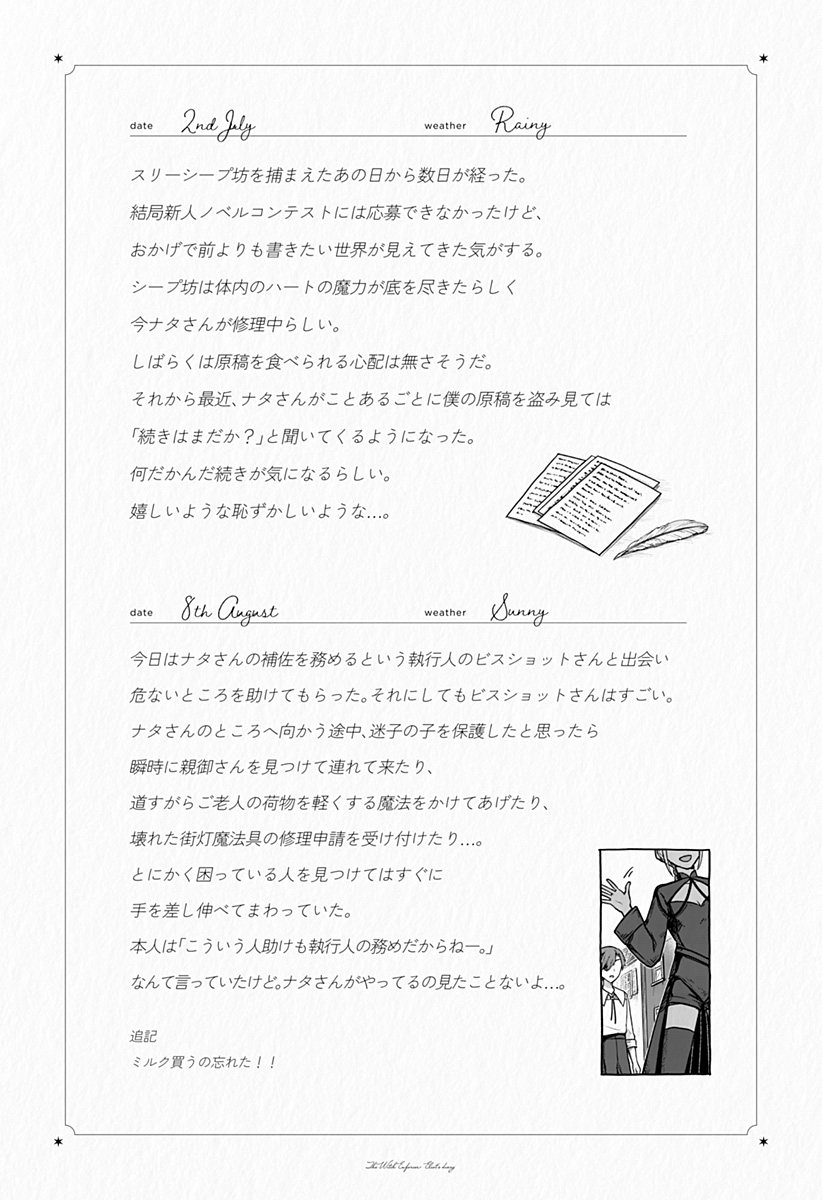 date 2nd July weather Rainy
スリーシープ坊を捕まえたあの日から数日が経った。
結局新人ノベルコンテストには応募できなかったけど、
おかげで前よりも書きたい世界が見えてきた気がする。
シープ坊は体内のハートの魔力が底を尽きたらしく
今ナタさんが修理中らしい。
しばらくは原稿を食べられる心配は無さそうだ。
それから最近、ナタさんがことあるごとに僕の原稿を盗み見ては
「続きはまだか？」と聞いてくるようになった。
何だかんだ続きが気になるらしい。
嬉しいような恥ずかしいような…。
date 8th August weather Sunny
今日はナタさんの補佐を務めるという執行人のビスショットさんと出会い
危ないところを助けてもらった。それにしてもビスショットさんはすごい。
ナタさんのところへ向かう途中、迷子の子を保護したと思ったら
瞬時に親御さんを見つけて連れて来たり、
道すがらご老人の荷物を軽くする魔法をかけてあげたり、
壊れた街灯魔法具の修理申請を受け付けたり…。
とにかく困っている人を見つけてはすぐに
手を差し伸べてまわっていた。
本人は「こういう人助けも執行人の務めだからねー。」
なんて言っていたけど。ナタさんがやってるの見たことないよ…。
追記
ミルク買うの忘れた！！
The Witch Enforcer